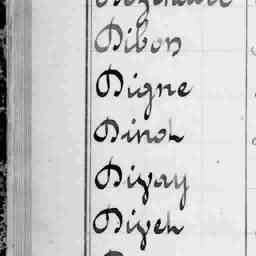 Dibon
Digne
Dinol
Divay
Diveh